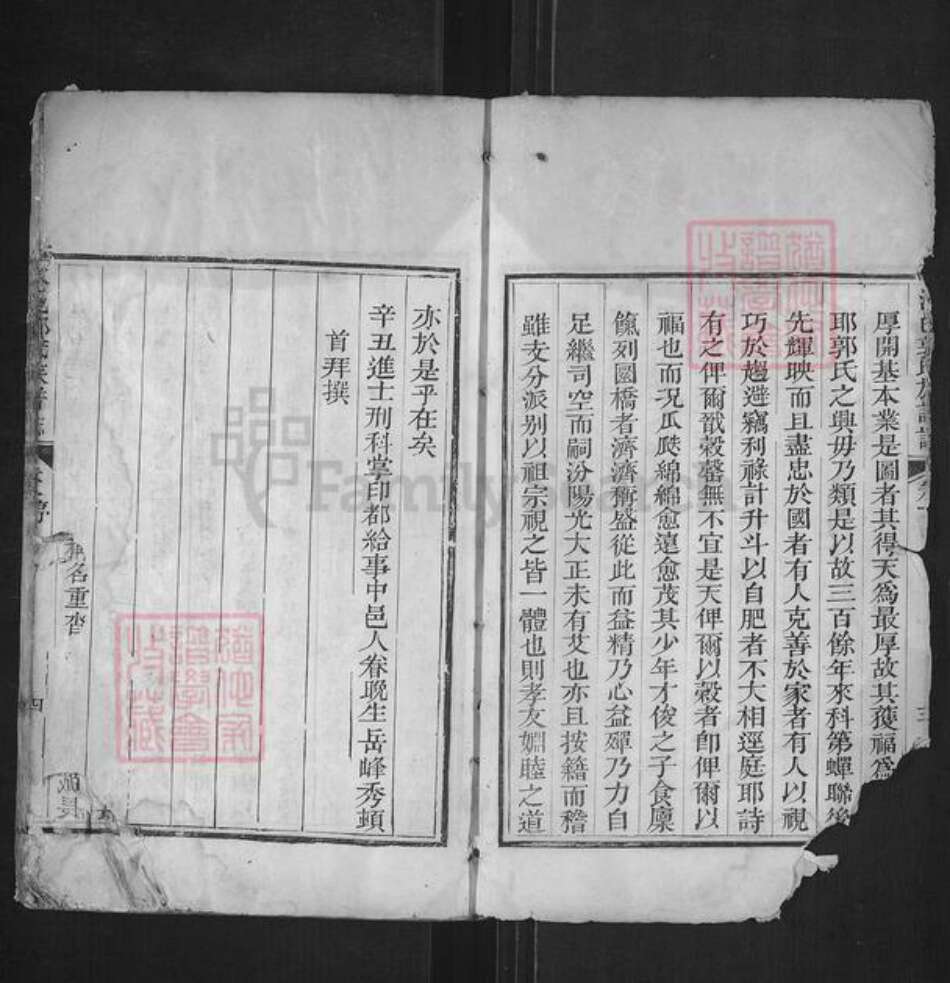 厚開基本業是圖者其得天爲最厚故其獲福爲
耶郭氏之興毋乃類是以故三百餘年來科第蟬聯後
先輝映而且盡忠於國者有人克善於家者有人以視
巧於趨避竊利祿計升斗以自肥者不大相逕庭耶詩
有之俾爾戩穀罄無不宜是天俾爾以穀者卽俾爾以
福也而况瓜瓞綿綿愈遠愈茂其少年才俊之子食廩
餼列圜橋者濟濟稱盛從此而益精乃心益殫乃力自
足繼司空而嗣汾陽光大正未有艾也亦且按籍而稽
雖支分派别以祖宗視之皆一體也則孝友婣睦之道
亦於是乎在矣
辛丑進士刑科掌印都給事中邑人眷晚生岳峰秀頓
首拜撰
名重
四
譜學會
收藏
FamilySearch